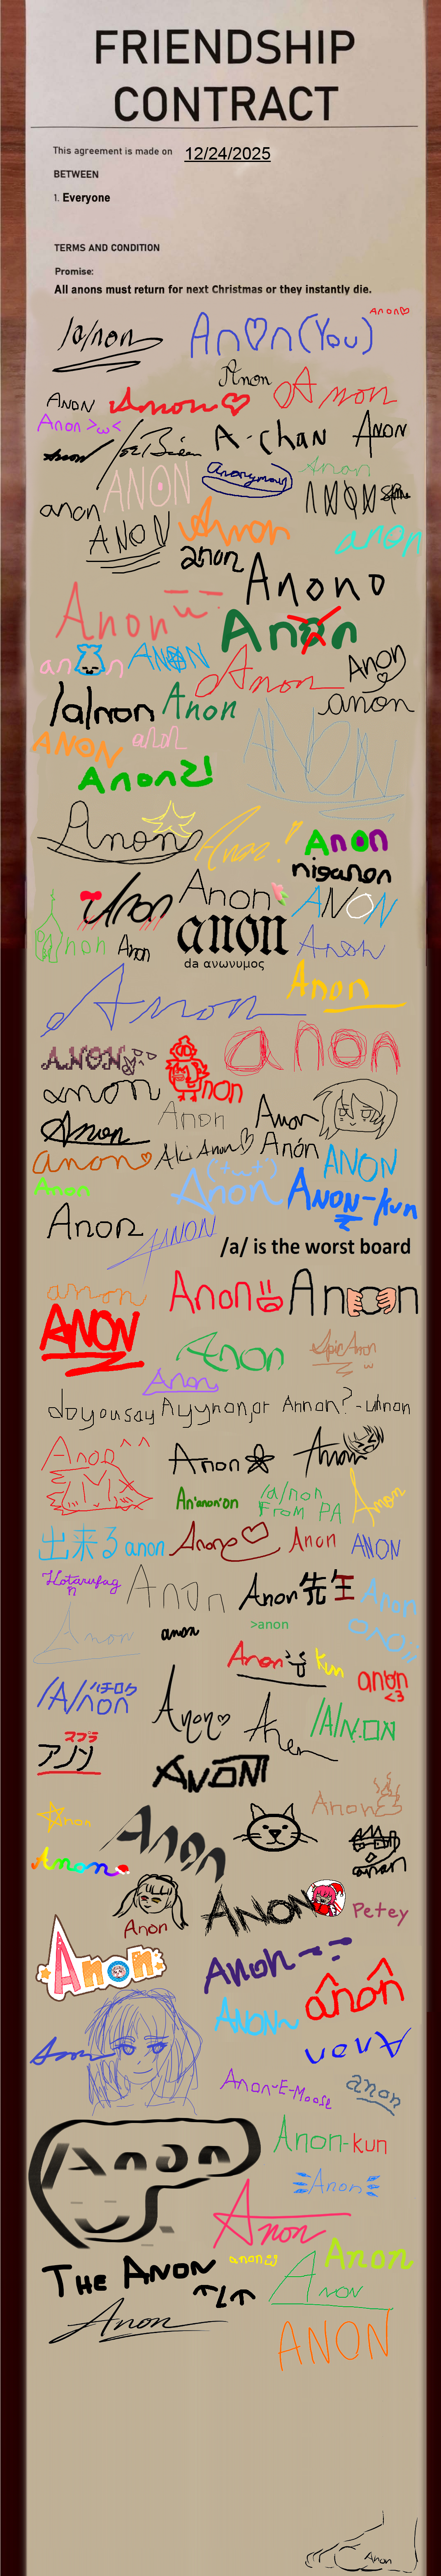 FRIENDSHIP
CONTRACT
This agreement is made on 12/24/2025
BETWEEN
1. Everyone
TERMS AND CONDITION
Promise:
All anons must return for next Christmas or they instantly die.
Anon♡
/a/non
An♡n(You)
Anon
Anon
Anon♡
Anon
Anon >ω<
Joe Biden
A-chan
Anon
Anon
Anonymous
Anon
ANON
anon
ANON
Anon
anon
anon
Anono
Anon
Anon
an n
ANON
Anon
Anon
/a/non
Anon
anon
ANON
anon
ANON
Anon
Anon
Anon!
Anon
niganon
Anon
Anon
ANON
anon
anon
Anon
da ανωνυμος
Anon
Anon
Anon
ANON
non
anon
anon
Anon
Anon
Anon
anon♡
Aki Anon♡
Anón
ANON
Anon
Anon
ANON-kun
Anon
ANON
/a/ is the worst board
anon
Anon
Anon
ANON
Anon
EpicAnon
Anon
do you say Ayynon, or Annon? - Unnon
Anon ^^
Anon
Anon
An'anon'on
/a/non
From PA
Anon
出来る anon
Anon♡
Anon
ANON
Hotarufag
Anon
Anon先生
Anon
Anon
anon
>anon
anon
Anon
kun
anon
<3
/A/non
ハチロク
Anon♡
Anon
/A/NON
スプラ
アノン
ANON
Anon
☆Anon
Anon
anon
Anon
Anon
ANON
Petey
Anon
Anon
anon
Anon
ANON~
Anon
Anon-E-Moose
anon
Anon
Anon-kun
Anon
Anon
anon
Anon
THE ANON
Anon
Anon
ANON
Anon